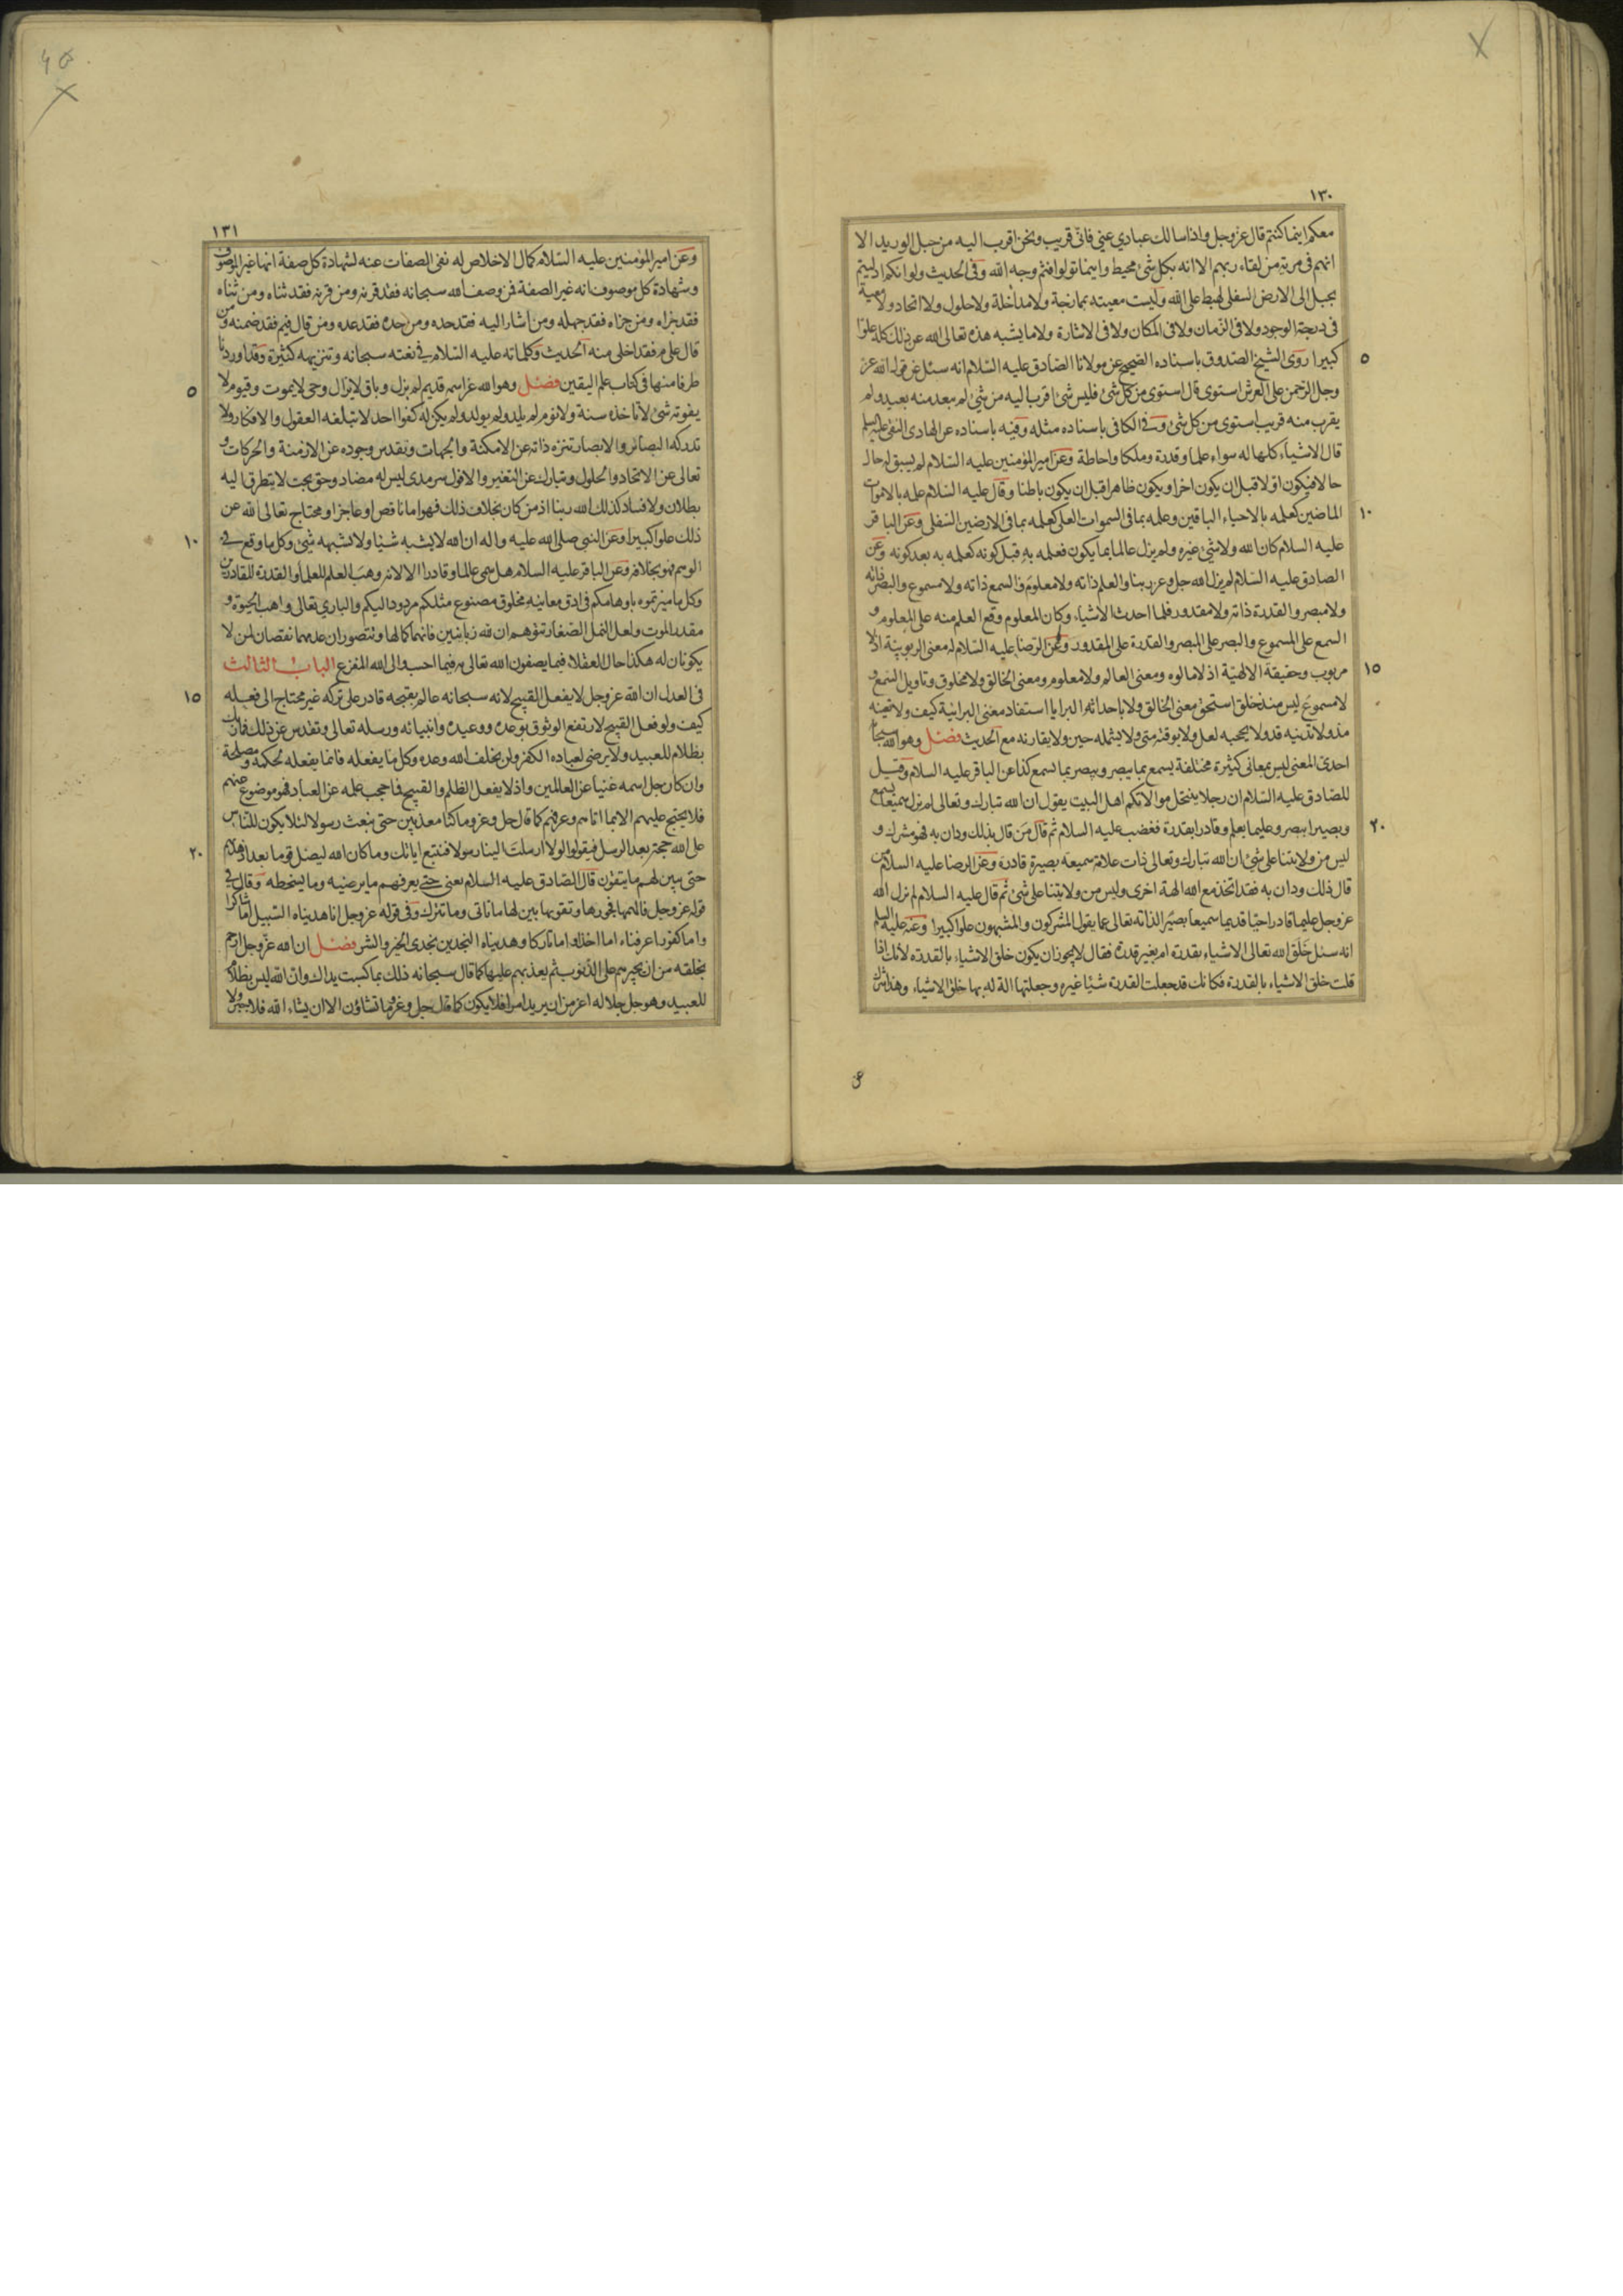 ١٣٠
معكم اينما كنتم قال عز وجل واذا سالك عبادي عني فاني قريب ونحن اقرب اليه من حبل الوريد الا
انهم في مرية من لقاء ربهم الا انه بكل شئ محيط واينما تولوا فثم وجه الله وفي الحديث ولو انكم ادليتم
بحبل الى الارض السفلى لهبط على الله وليست معيته بممازجة ولا مداخلة ولا حلول ولا اتحاد ولا معية
في درجة الوجود ولا في الزمان ولا في المكان ولا في الاشارة ولا ما يشبه هذه تعالى الله عن ذلك كله علوا
٥ كبيرا روى الشيخ الصدوق باسناده الصحيح عن مولانا الصادق عليه السلام انه سئل عن قول الله عز
وجل الرحمن على العرش استوى قال استوى من كل شئ فليس شئ اقرب اليه من شئ لم يبعد منه بعيد ولم
يقرب منه قريب استوى من كل شئ وفي الكافي باسناده مثله وفيه باسناده عن الهادي النقي عليه السلم
قال الاشياء كلها له سواء علما وقدرة وملكا واحاطة وعن امير المؤمنين عليه السلام لم يسبق له حال
حالا فيكون اولا قبل ان يكون اخرا ويكون ظاهرا قبل ان يكون باطنا وقال عليه السلام علمه بالاموات
١٠ الماضين كعلمه بالاحياء الباقين وعلمه بما في السموات العلى كعلمه بما في الارضين السفلى وعن الباقر
عليه السلام كان الله ولا شئ غيره ولم يزل عالما بما يكون فعلمه به قبل كونه كعلمه به بعد كونه وعن
الصادق عليه السلام لم يزل الله جل وعز ربنا والعلم ذاته ولا معلوم والسمع ذاته ولا مسموع والبصر ذاته
ولا مبصر والقدرة ذاته ولا مقدور فلما احدث الاشياء وكان المعلوم وقع العلم منه على المعلوم و
السمع على المسموع والبصر على المبصر والقدرة على المقدور وعن الرضا عليه السلام له معنى الربوبية اذ لا
١٥ مربوب وحقيقة الالهية اذ لا مالوه ومعنى العالم ولا معلوم ومعنى الخالق ولا مخلوق وتاويل السمع و
لا مسموع ليس منذ خلق استحق معنى الخالق ولا باحداثه البرايا استفاد معنى البرائية كيف ولا تعينه
مذ ولا تدنيه قد ولا يحجبه لعل ولا يوقته متى ولا يشمله حين ولا يقارنه مع الحديث فصل وهو الله سبحانه
احدي المعنى ليس بمعاني كثيرة مختلفة يسمع بما يبصر ويبصر بما يسمع كذا عن الباقر عليه السلام وقيل
للصادق عليه السلام ان رجلا ينتحل موالاتكم اهل البيت يقول ان الله تبارك وتعالى لم يزل سميعا بسمع
٢٠ وبصيرا ببصر وعليما بعلم وقادرا بقدرة فغضب عليه السلام ثم قال من قال بذلك ودان به فهو مشرك و
ليس من ولايتنا على شئ ان الله تبارك وتعالى ذات علامة سميعة بصيرة قادرة وعن الرضا عليه السلام من
قال ذلك ودان به فقد اتخذ مع الله الهة اخرى وليس من ولايتنا على شئ ثم قال عليه السلام لم يزل الله
عز وجل عليما قادرا حيا قديما سميعا بصيرا لذاته تعالى عما يقول المشركون والمشبهون علوا كبيرا وعنه عليه السلم
انه سئل خلق الله تعالى الاشياء بقدرة ام بغير قدرة فقال لا يجوز ان يكون خلق الاشياء بالقدرة لانك اذا
قلت خلق الاشياء بالقدرة فكانك قد جعلت القدرة شيئا غيره وجعلتها الة له بها خلق الاشياء وهذا شرك
١٣١
وعن امير المؤمنين عليه السلام كمال الاخلاص له نفي الصفات عنه لشهادة كل صفة انها غير الموصوف
وشهادة كل موصوف انه غير الصفة فمن وصف الله سبحانه فقد قرنه ومن قرنه فقد ثناه ومن ثناه
فقد جزاه ومن جزاه فقد جهله ومن اشار اليه فقد حده ومن حده فقد عده ومن قال فيم فقد ضمنه ومن
قال على م فقد اخلى منه الحديث وكلماته عليه السلام في نعته سبحانه وتنزيهه كثيرة وقد اوردنا
٥ طرفا منها في كتاب علم اليقين فصل وهو الله عز اسمه قديم لم يزل وباق لا يزال وحي لا يموت وقيوم لا
يفوته شئ لا تاخذه سنة ولا نوم لم يلد ولم يولد ولم يكن له كفوا احد لا تبلغه العقول والافكار ولا
تدركه البصائر والابصار تنزه ذاته عن الامكنة والجهات وتقدس وجوده عن الازمنة والحركات و
تعالى عن الاتحاد والحلول وتبارك عن التغير والافول سرمدي ليس له مضاد وحق بحت لا يتطرق اليه
بطلان ولا فساد كذلك الله ربنا اذ من كان بخلاف ذلك فهو اما ناقص او عاجز او محتاج تعالى الله عن
١٠ ذلك علوا كبيرا وعن النبي صلى الله عليه واله ان الله لا يشبه شيئا ولا يشبهه شئ وكل ما وقع في
الوهم فهو بخلافه وعن الباقر عليه السلام هل سمي عالما وقادرا الا لانه وهب العلم للعلماء والقدرة للقادرين
وكل ما ميزتموه باوهامكم في ادق معانيه مخلوق مصنوع مثلكم مردود اليكم والباري تعالى واهب الحيوة و
مقدر الموت ولعل النمل الصغار تتوهم ان لله زبانيتين فانهما كمالها وتتصور ان عدمهما نقصان لمن لا
يكونان له هكذا حال العقلاء فيما يصفون الله تعالى به فيما احسب والى الله المفزع الباب الثالث
١٥ في العدل ان الله عز وجل لا يفعل القبيح لانه سبحانه عالم بقبحه قادر على تركه غير محتاج الى فعله
كيف ولو فعل القبيح لارتفع الوثوق بوعده ووعيده وانبيائه ورسله تعالى وتقدس عن ذلك فان الله ليس
بظلام للعبيد ولا يرضى لعباده الكفر ولن يخلف الله وعده وكل ما يفعله فانما يفعله لحكمة ومصلحة
وان كان جل اسمه غنيا عن العالمين واذ لا يفعل الظلم والقبيح فما حجب علمه عن العباد فهو موضوع عنهم
فلا يحتج عليهم الا بما اتاهم وعرفهم كما قال جل وعز وما كنا معذبين حتى نبعث رسولا لئلا يكون للناس
٢٠ على الله حجة بعد الرسل فيقولوا لولا ارسلت الينا رسولا فنتبع اياتك وما كان الله ليضل قوما بعد اذ هديهم
حتى يبين لهم ما يتقون قال الصادق عليه السلام يعني حتى يعرفهم ما يرضيه وما يسخطه وقال في
قوله عز وجل فالهمها فجورها وتقويها بين لها ما تاتي وما تترك وفي قوله عز وجل انا هديناه السبيل اما شاكرا
واما كفورا عرفناه اما اخذا واما تاركا وهديناه النجدين نجدي الخير والشر فصل ان الله عز وجل ارحم
بخلقه من ان يجبرهم على الذنوب ثم يعذبهم عليها كما قال سبحانه ذلك بما كسبت يداك وان الله ليس بظلام
للعبيد وهو جل جلاله اعز من ان يريد امرا فلا يكون كما قال جل وعز وما تشاؤن الا ان يشاء الله فلا جبر ولا